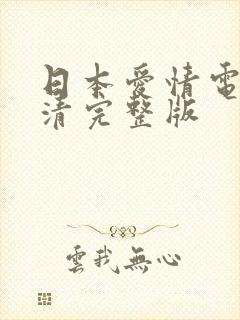 日本愛情電
清完整版
雲我無心